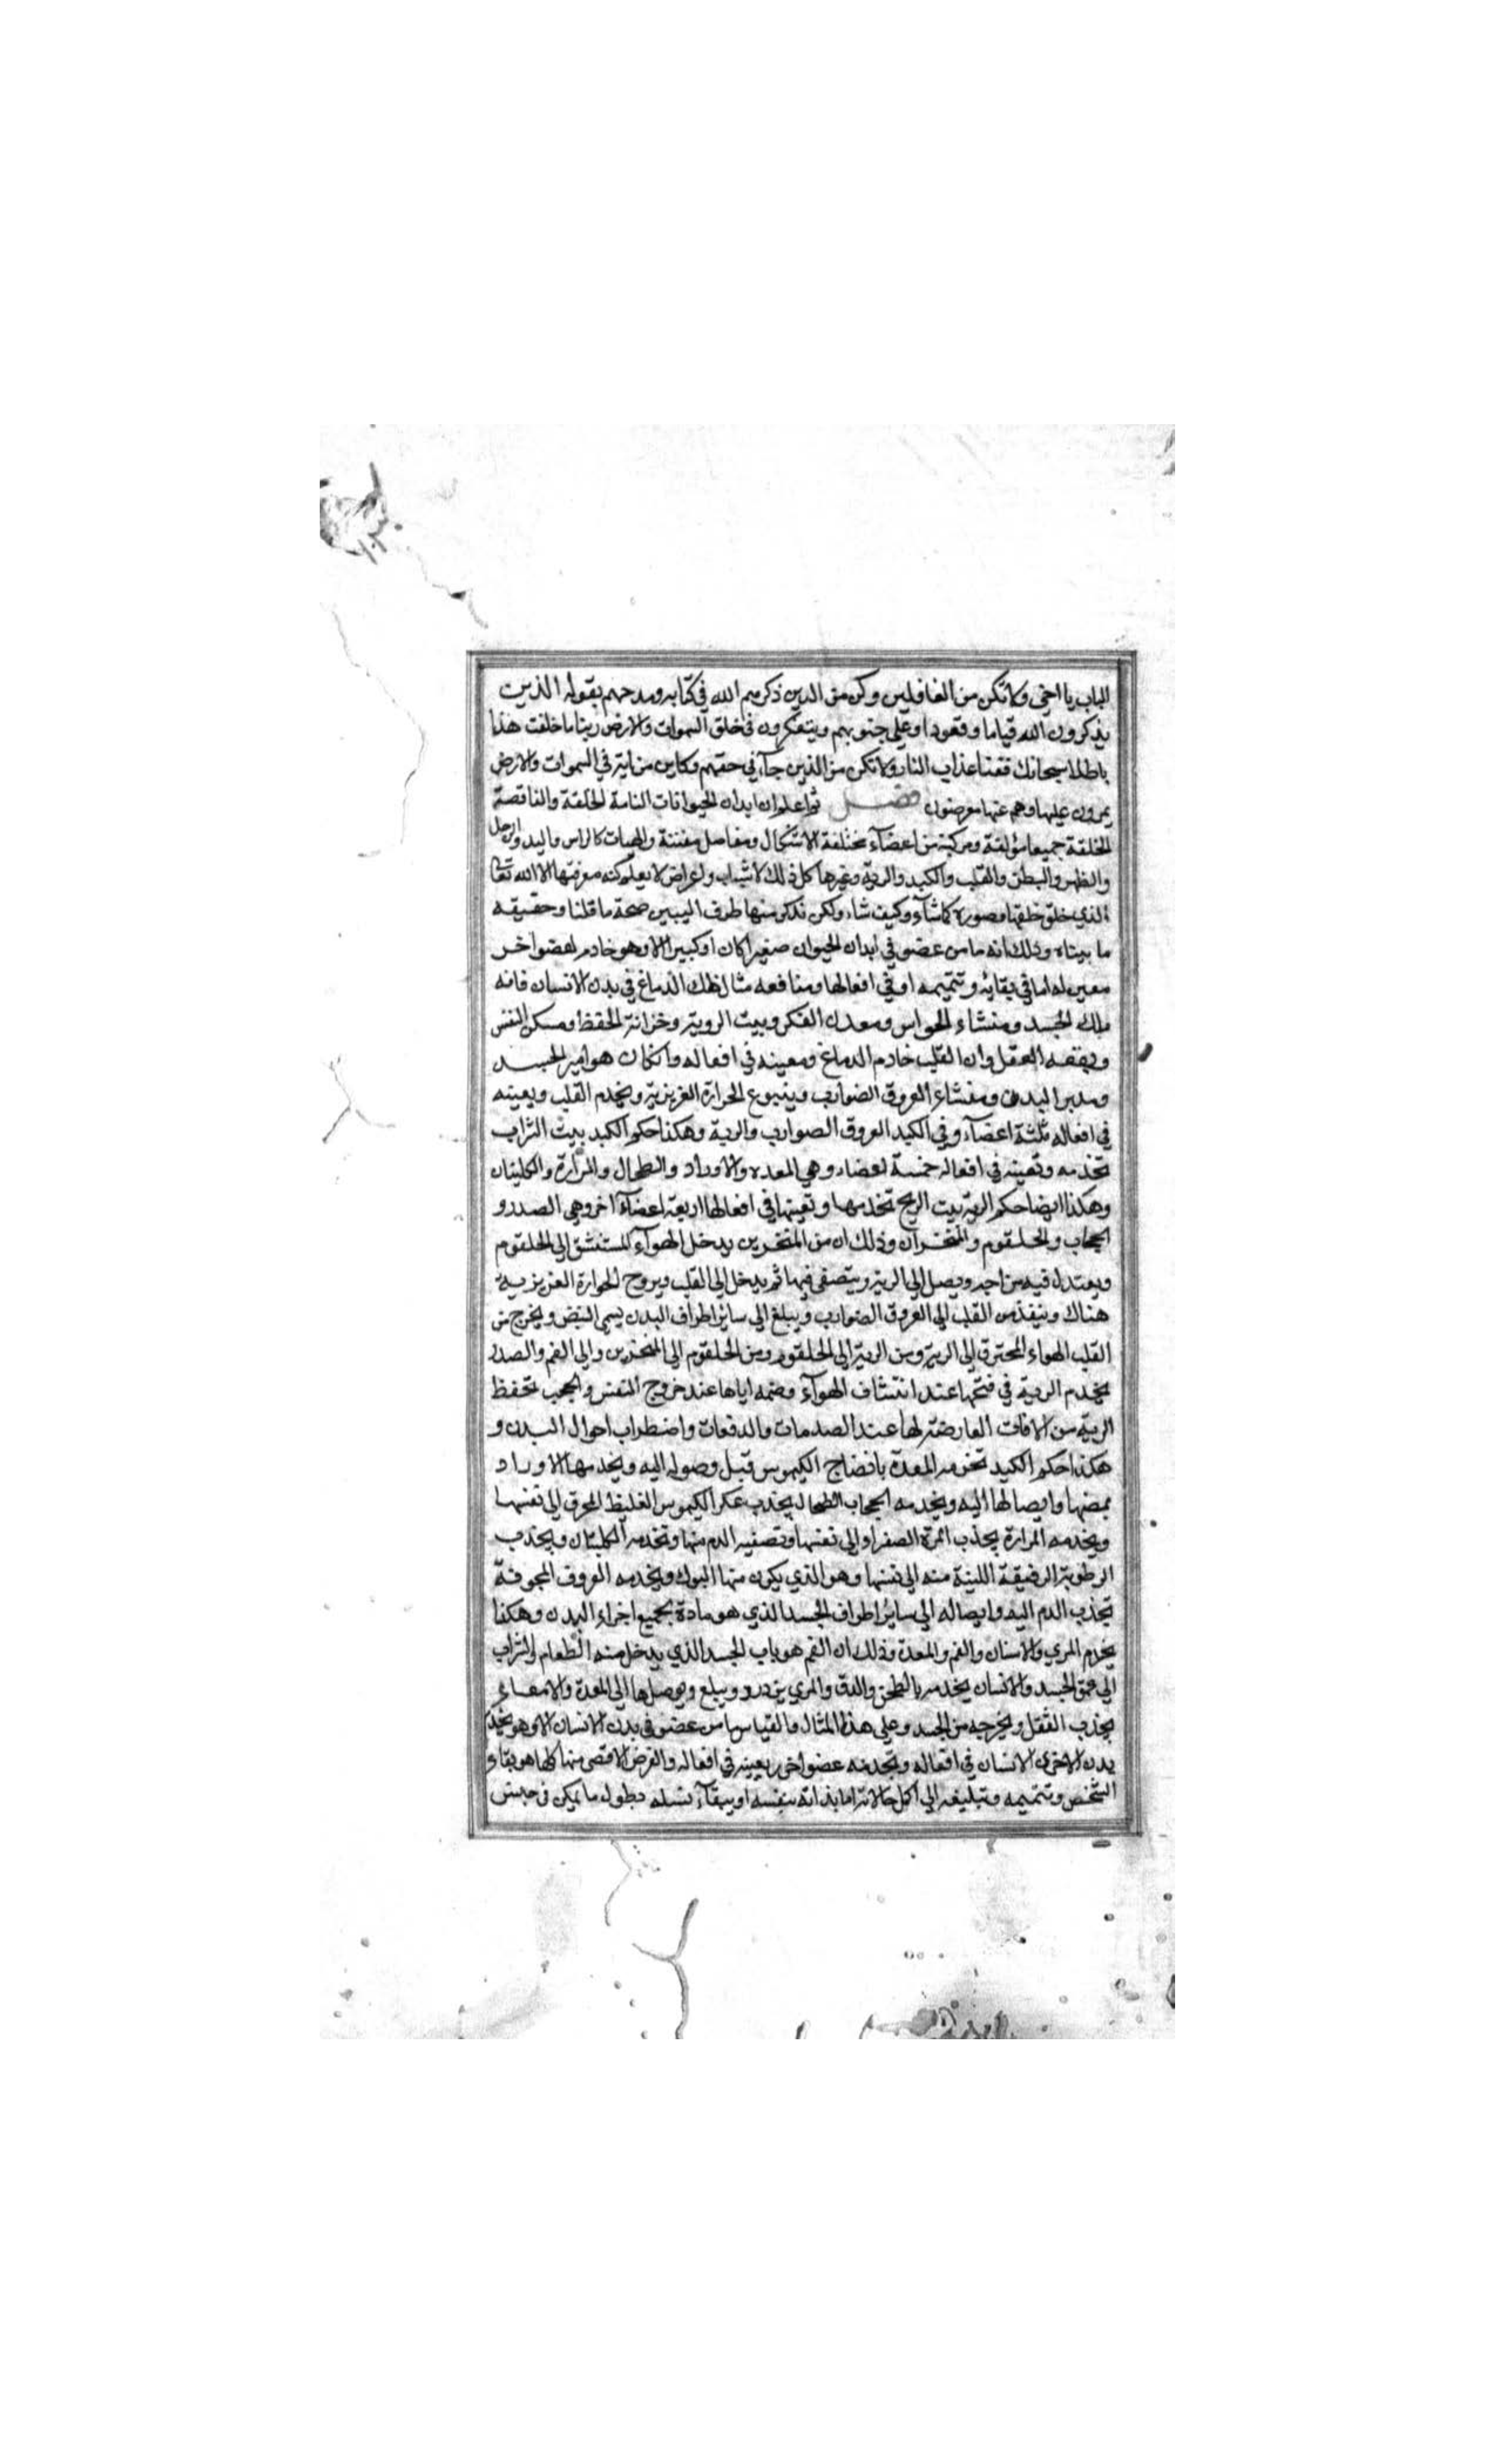 الباب يا اخي ولا تكن من الغافلين وكن من الدين ذكرهم الله في كتابه ومدحهم بقوله الذين
يذكرون الله قياما وقعودا وعلي جنوبهم ويتفكرون في خلق السموات والارض ربنا ما خلقت هذا
باطلا سبحانك فقنا عذاب النار ولا تكن من الذين جآء في حقهم وكاين من اية في السموات والارض
يمرون عليها وهم عنها معرضون فصل ثم اعلم ان ابدان الحيوانات التامة الخلقة والناقصة
الخلقة جميعا مؤلفة ومركبة من اعضآء مختلفة الاشكال ومفاصل مفننة والهيات كالراس واليد والرجل
والظهر والبطن والقلب والكبد والرية وغيرها كل ذلك لاسباب ولعراض لا يعلم كنه معرفتها الا الله تعالى
الذي خلق خلقها وصوره كما شآء وكيف شاء ولكن نذكر منها طرف اليبين صحة ما قلنا وحقيقه
ما بيناه وذلك انه ما من عضو في ابدان الحيوان صغيرا كان او كبيرا الا وهو خادم لعضو اخر
معين له اما في بقايه وتتميمه او في افعالها ومنافعه مثال ذلك الدماغ في بدن الانسان فانه
ملك الجسد ومنشاء الحواس ومعدن الفكر وبيت الروية وخزانة الحفظ ومسكن النفس
العقل وان القلب خادم الدماغ ومعينه في افعاله وان كان هو امير الجسد
ومدبر البدن ومنشاء العروق الضوارب وينبوع الحرارة الغريزية ويخدم القلب ويعينه
في افعاله ثلثة اعضآء وفي الكبد العروق الصوارب والرية وهكذا حكم الكبد بيت الشراب
تخدمه وتعينه في افعاله خمسة اعضاء وهي المعده والاوراد والطحال والمرارة والكليتان
وهكذا ايضا حكم الرية بيت الريح تخدمها وتعينها في افعالها اربعة اعضآء اخر وهي الصدر و
الحجاب والحلقوم والمنخران وذلك ان من المنخرين يدخل الهوآء المستنشق الي الحلقوم
ويعتدل فيه مزاجه ويصل الي الرية ويتصفي فيها ثم يدخل الي القلب ويروح الحرارة الغريزية
هناك وينفذ من القلب الي العروق الضوارب ويبلغ الي ساير اطراف البدن يسمي النبض ويخرج من
القلب الهواء المحترق الي الرية ومن الرية الي الحلقوم ومن الحلقوم الي المنخرين والي الفم والصدر
يخدم الرية في فتحها عند انتشاف الهوآء وضمه اياها عند خروج النفس والحجب تحفظ
الرية من الافات العارضة لها عند الصدمات والدفعات واضطراب احوال البدن و
هكذا حكم الكبد تخدمه المعدة بافضاج الكيموس قبل وصوله اليه ويخدمها الاوراد
بمصها وايصالها اليه ويخدمه الحجاب الطحال يجذب عكر الكيموس الغليظ المحرق الي نفسها
ويخدمه المرارة بجذب المرة الصفرا والي نفسها وتصفيه الدم منها وتخدمه الكليتان ويجذب
الرطوبة الرقيقة اللينة منه الي نفسها وهو الذي يكون منها البول ويخدمه العروق المجوفة
تجذب الدم اليه وايصاله الي ساير اطراف الجسد الذي هو مادة بجميع اجزاء البدن وهكذا
يخدم المري والاسنان والفم والمعدة وذلك ان الفم هو باب الجسد الذي يدخل منه الطعام والشراب
الي عمق الجسد والانسان يخدمه بالطحن والدق والمري يزدرد ويبلع ويوصلها الي المعدة والامعاء
بجذب الثقل ويخرجه من الجسد وعلي هذا المثال والقياس ما من عضو في بدن الانسان الا وهو يخدم
بدن الاخري الانسان في افعاله وتخدمه عضو اخر يعينه في افعاله والغرض الاقصي منها كلها هو بقاء
الشخص وتتميمه وتبليغه الي اكمل حالاته اما بذاته بنفسه او ببقآء نسله بطول ما يمكن في جنس